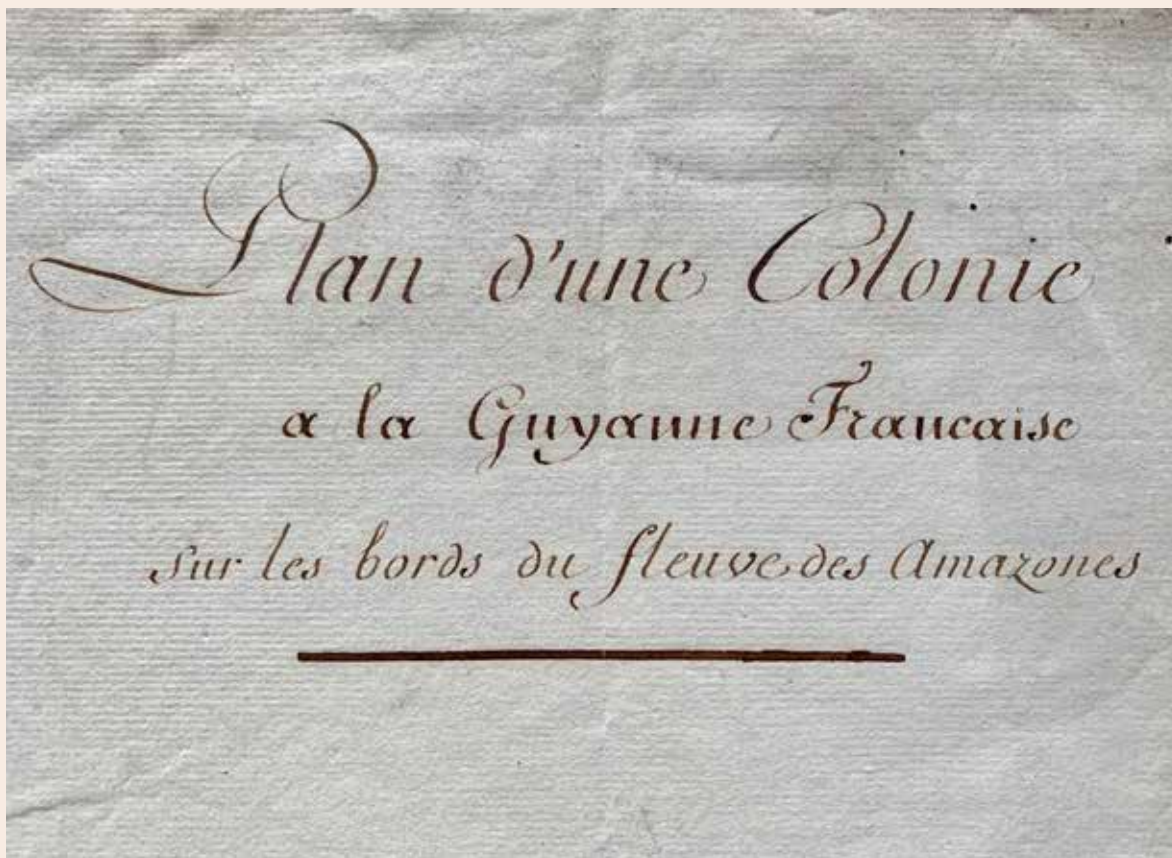 Plan d'une Colonie
a la Guyanne Francaise
sur les bords du fleuve des Amazones